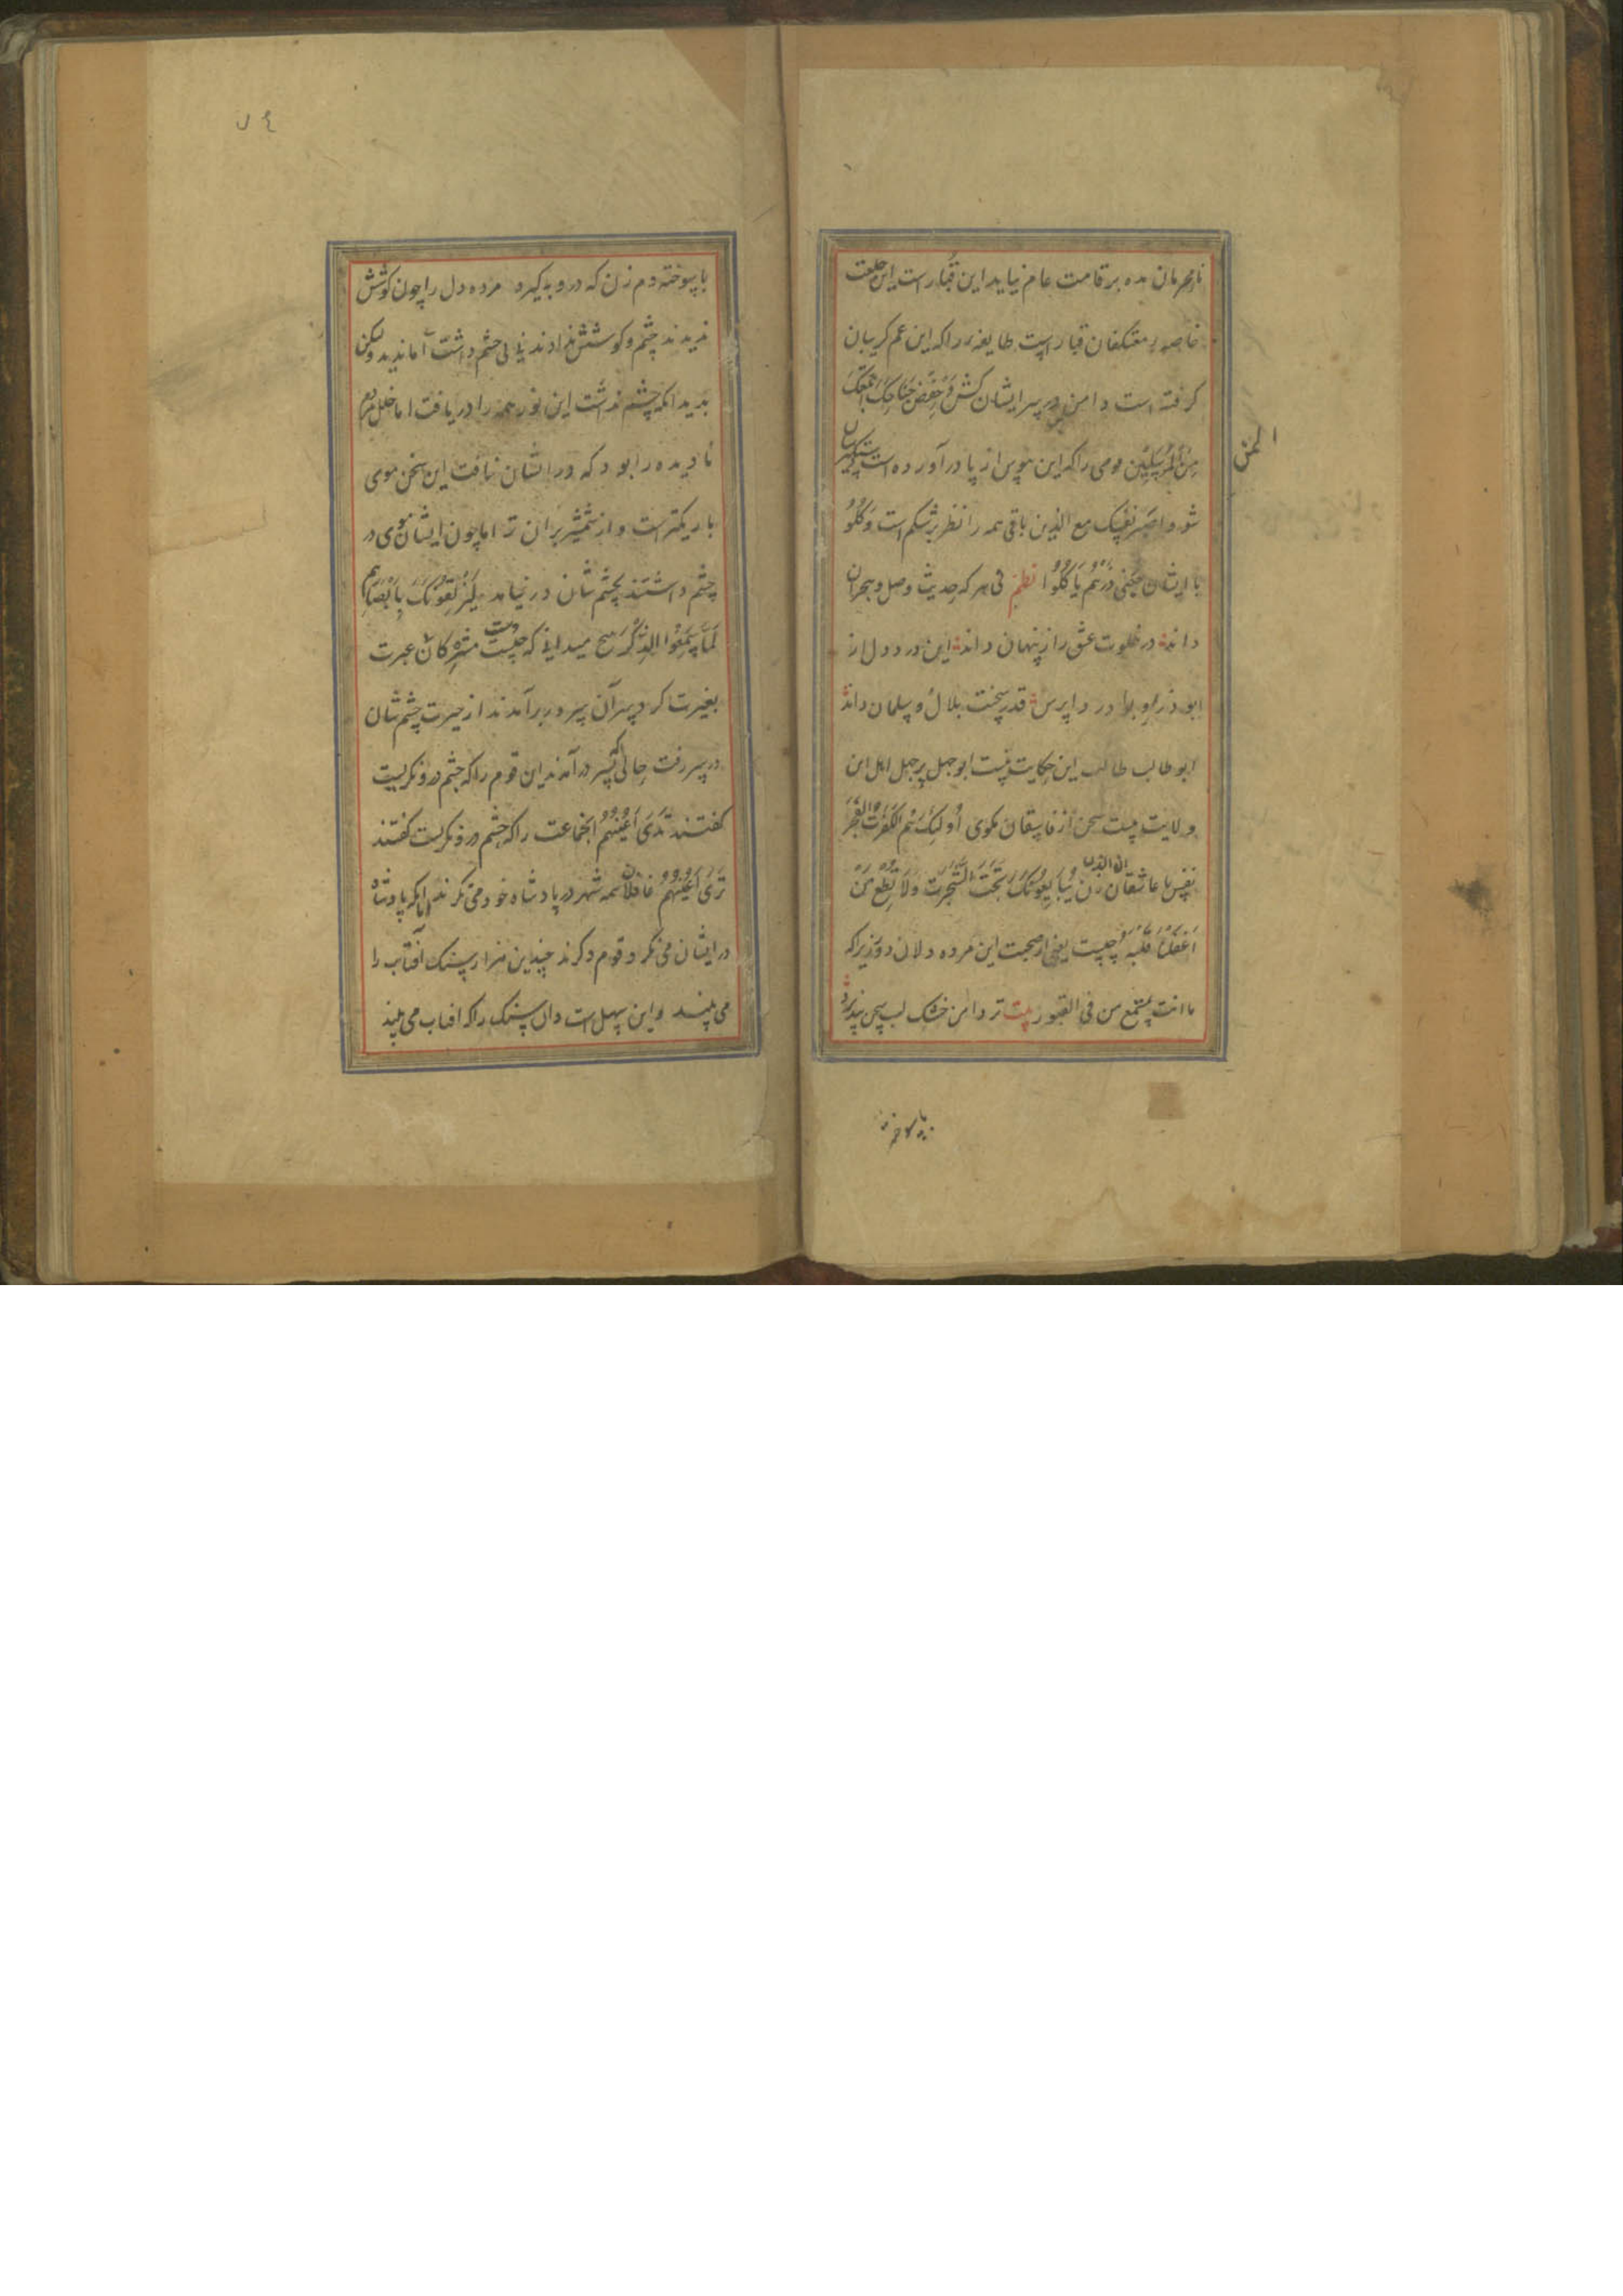 نامحرمان مده بر قامت عام نیاید این قبا راست این خلعت
خاصه بر معتکفان قبا راست طایفه را که این غم کریبان
کرفته است دامن در سر ایشان کش وَاخْفِضْ جَنَاحَکَ لِمَنِ اتَّبَعَکَ
مِنَ المُؤْمِنِینَ قومی را که این هوس از پا در آورده است دستکیر ایشان
شو واصبر نفسک مع الذین باقی همه را نظر بر شکم است وَکُلُوْا
با ایشان یعنی ذَرْهُمْ یَأکُلُوْا نظم نی هر که حدیث وصل و هجران
داند در خلوت عشق راز پنهان داند این درد دل از
ابوذر و بودردا پرس قدر سخت بلال و سلمان داند
ابو طالب طالب این حکایت نیست ابو جهل پر جهل اهل این
ولایت نیست سخن از فاسقان مکوی أُولٰئِکَ هُمُ الکَفَرَةُ الْفَجَرَة
نفس با عاشقان زن ان الذین یُبَایِعُونَکَ تَحْتَ الشَّجَرَتِ وَلَا تُطِعْ مَنْ
أَغْفَلْنَا قَلْبَهُ چیست یعنی از صحبت این مرده دلان دور زیرا که
ما انت بمسمع من فی القبور بیت تر دامن خشک لب سخن نپذیرد
با سوخته
با سوخته دم زن که درو در کیرد مرده دل را چون کوشش
ندیدند چشم و کوشش ندادند نی لی چشم داشت اما ندید ولیکن
بدید انکه چشم نداشت این نور همه را دریافت اما خلل مردم
نادیده را بود که در ایشان نتافت این سخن موی
باریکترست و از شمشیر بران تر اما چون ایشان موی در
چشم داشتند بچشم شان در نیامد لَیُزْلِقُوْنَکَ بِاَبْصَارِهِمْ
لَمَّا سَمِعُوْا الذِّکْرَ هیچ میدانی که چیست مشرکان عبرت
بغیرت کرد سر آن سرور برآمدند از حیرت چشم شان
در سر رفت حالی بسر در آمدند این قوم را که چشم درو نکریست
کفتند تَرَی اَعْیُنَهُمْ انجماعت را که چشم درو نکریست کفتند
تَرَی اَعْیُنَهُمْ غافلان همه شهر در پادشاه خود می نکرند اما انکه پادشاه
در ایشان می نکرد قوم دکرند چندین هزار سنک آفتاب را
می بیند و این سهل است دان سنک را که افتاب می بیند